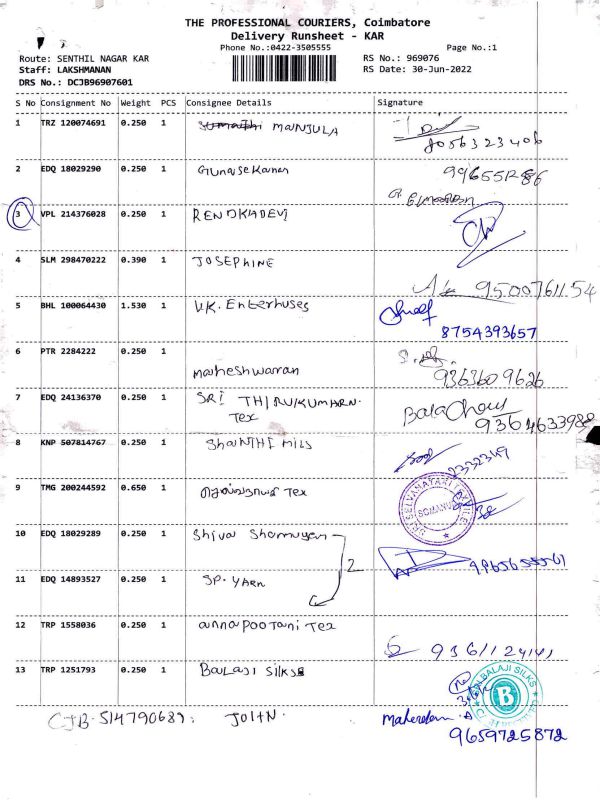 THE PROFESSIONAL COURIERS, Coimbatore
Delivery Runsheet - KAR
Phone No.:0422-3505555
Page No.:1
Route: SENTHIL NAGAR KAR
RS No.: 969076
Staff: LAKSHMANAN
RS Date: 30-Jun-2022
DRS No.: DCJB96907601
S No Consignment No Weight PCS Consignee Details Signature
1 TRZ 120074691 0.250 1 MANJULA
8056323406
2 EDQ 18029290 0.250 1 Gunasekaran
3 VPL 214376028 0.250 1 RENUKADEVI
4 SLM 298470222 0.390 1 JOSEPHINE
9500761154
5 BHL 100064430 1.530 1 V.K. Enterprises
8754393657
6 PTR 2284222 0.250 1
maheshwaran
9363609626
7 EDQ 24136370 0.250 1 SRI THIRUKUMARN.
Tex
9364633988
8 KNP 507814767 0.250 1 SHANTHI Mills
2332349
9 TMG 200244592 0.650 1 Tex
SRI SELVANAYAKI TEXTILE
SOMANUR
10 EDQ 18029289 0.250 1 Shiva Shanmugan
2
11 EDQ 14893527 0.250 1 SP. YARN
12 TRP 1558036 0.250 1 annapoorani Tex
13 TRP 1251793 0.250 1 BALAJI SILKS
BALAJI SILKS
B
CJB. 514790689. JOHN.
9659725872